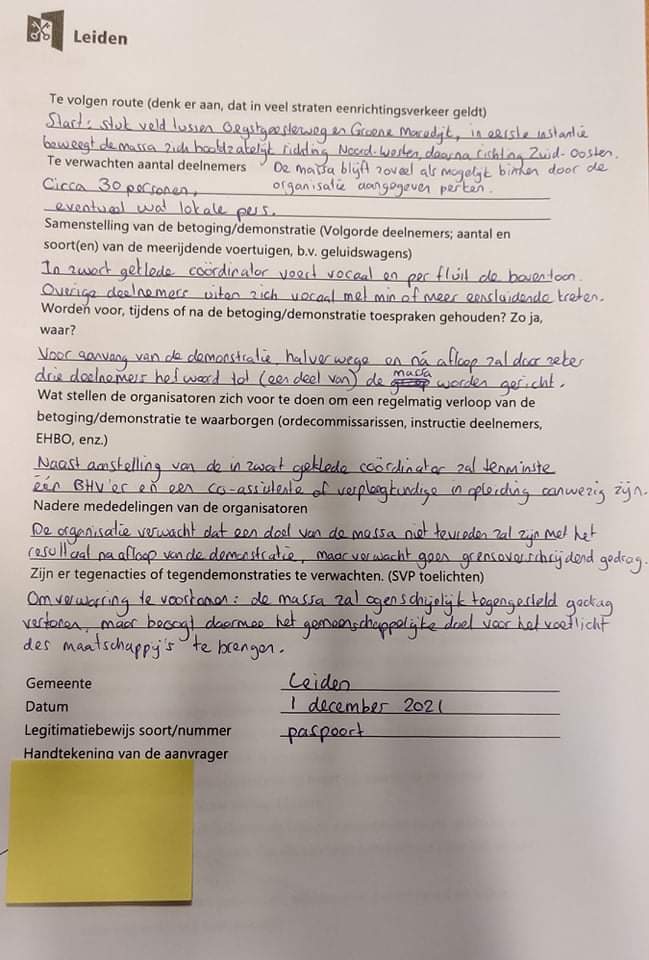 Leiden
Te volgen route (denk er aan, dat in veel straten eenrichtingsverkeer geldt)
Start: stuk veld tussen Oegstgeesterweg en Groene Maredijk, in eerste instantie
beweegt de massa zich hoofdzakelijk richting Noord-Westen, daarna richting Zuid-Oosten.
Te verwachten aantal deelnemers
De massa blijft zoveel als mogelijk binnen door de
organisatie aangegeven perken.
Circa 30 personen,
eventueel wat lokale pers.
Samenstelling van de betoging/demonstratie (Volgorde deelnemers; aantal en
soort(en) van de meerijdende voertuigen, b.v. geluidswagens)
In zwart geklede coördinator voert vocaal en per fluit de boventoon.
Overige deelnemers uiten zich vocaal met min of meer eensluidende kreten.
Worden voor, tijdens of na de betoging/demonstratie toespraken gehouden? Zo ja,
waar?
Voor aanvang van de demonstratie, halverwege en ná afloop zal door zeker
drie deelnemers het woord tot (een deel van) de massa worden gericht.
Wat stellen de organisatoren zich voor te doen om een regelmatig verloop van de
betoging/demonstratie te waarborgen (ordecommissarissen, instructie deelnemers,
EHBO, enz.)
Naast aanstelling van de in zwart geklede coördinator zal tenminste
één BHV'er en een co-assistente of verpleegkundige in opleiding aanwezig zijn.
Nadere mededelingen van de organisatoren
De organisatie verwacht dat een deel van de massa niet tevreden zal zijn met het
resultaat na afloop van de demonstratie, maar verwacht geen grensoverschrijdend gedrag.
Zijn er tegenacties of tegendemonstraties te verwachten. (SVP toelichten)
Om verwarring te voorkomen: de massa zal ogenschijnlijk tegengesteld gedrag
vertonen, maar beoogt daarmee het gemeenschappelijke doel voor het voetlicht
des maatschappij's te brengen.
Gemeente Leiden
Datum 1 december 2021
Legitimatiebewijs soort/nummer paspoort
Handtekening van de aanvrager